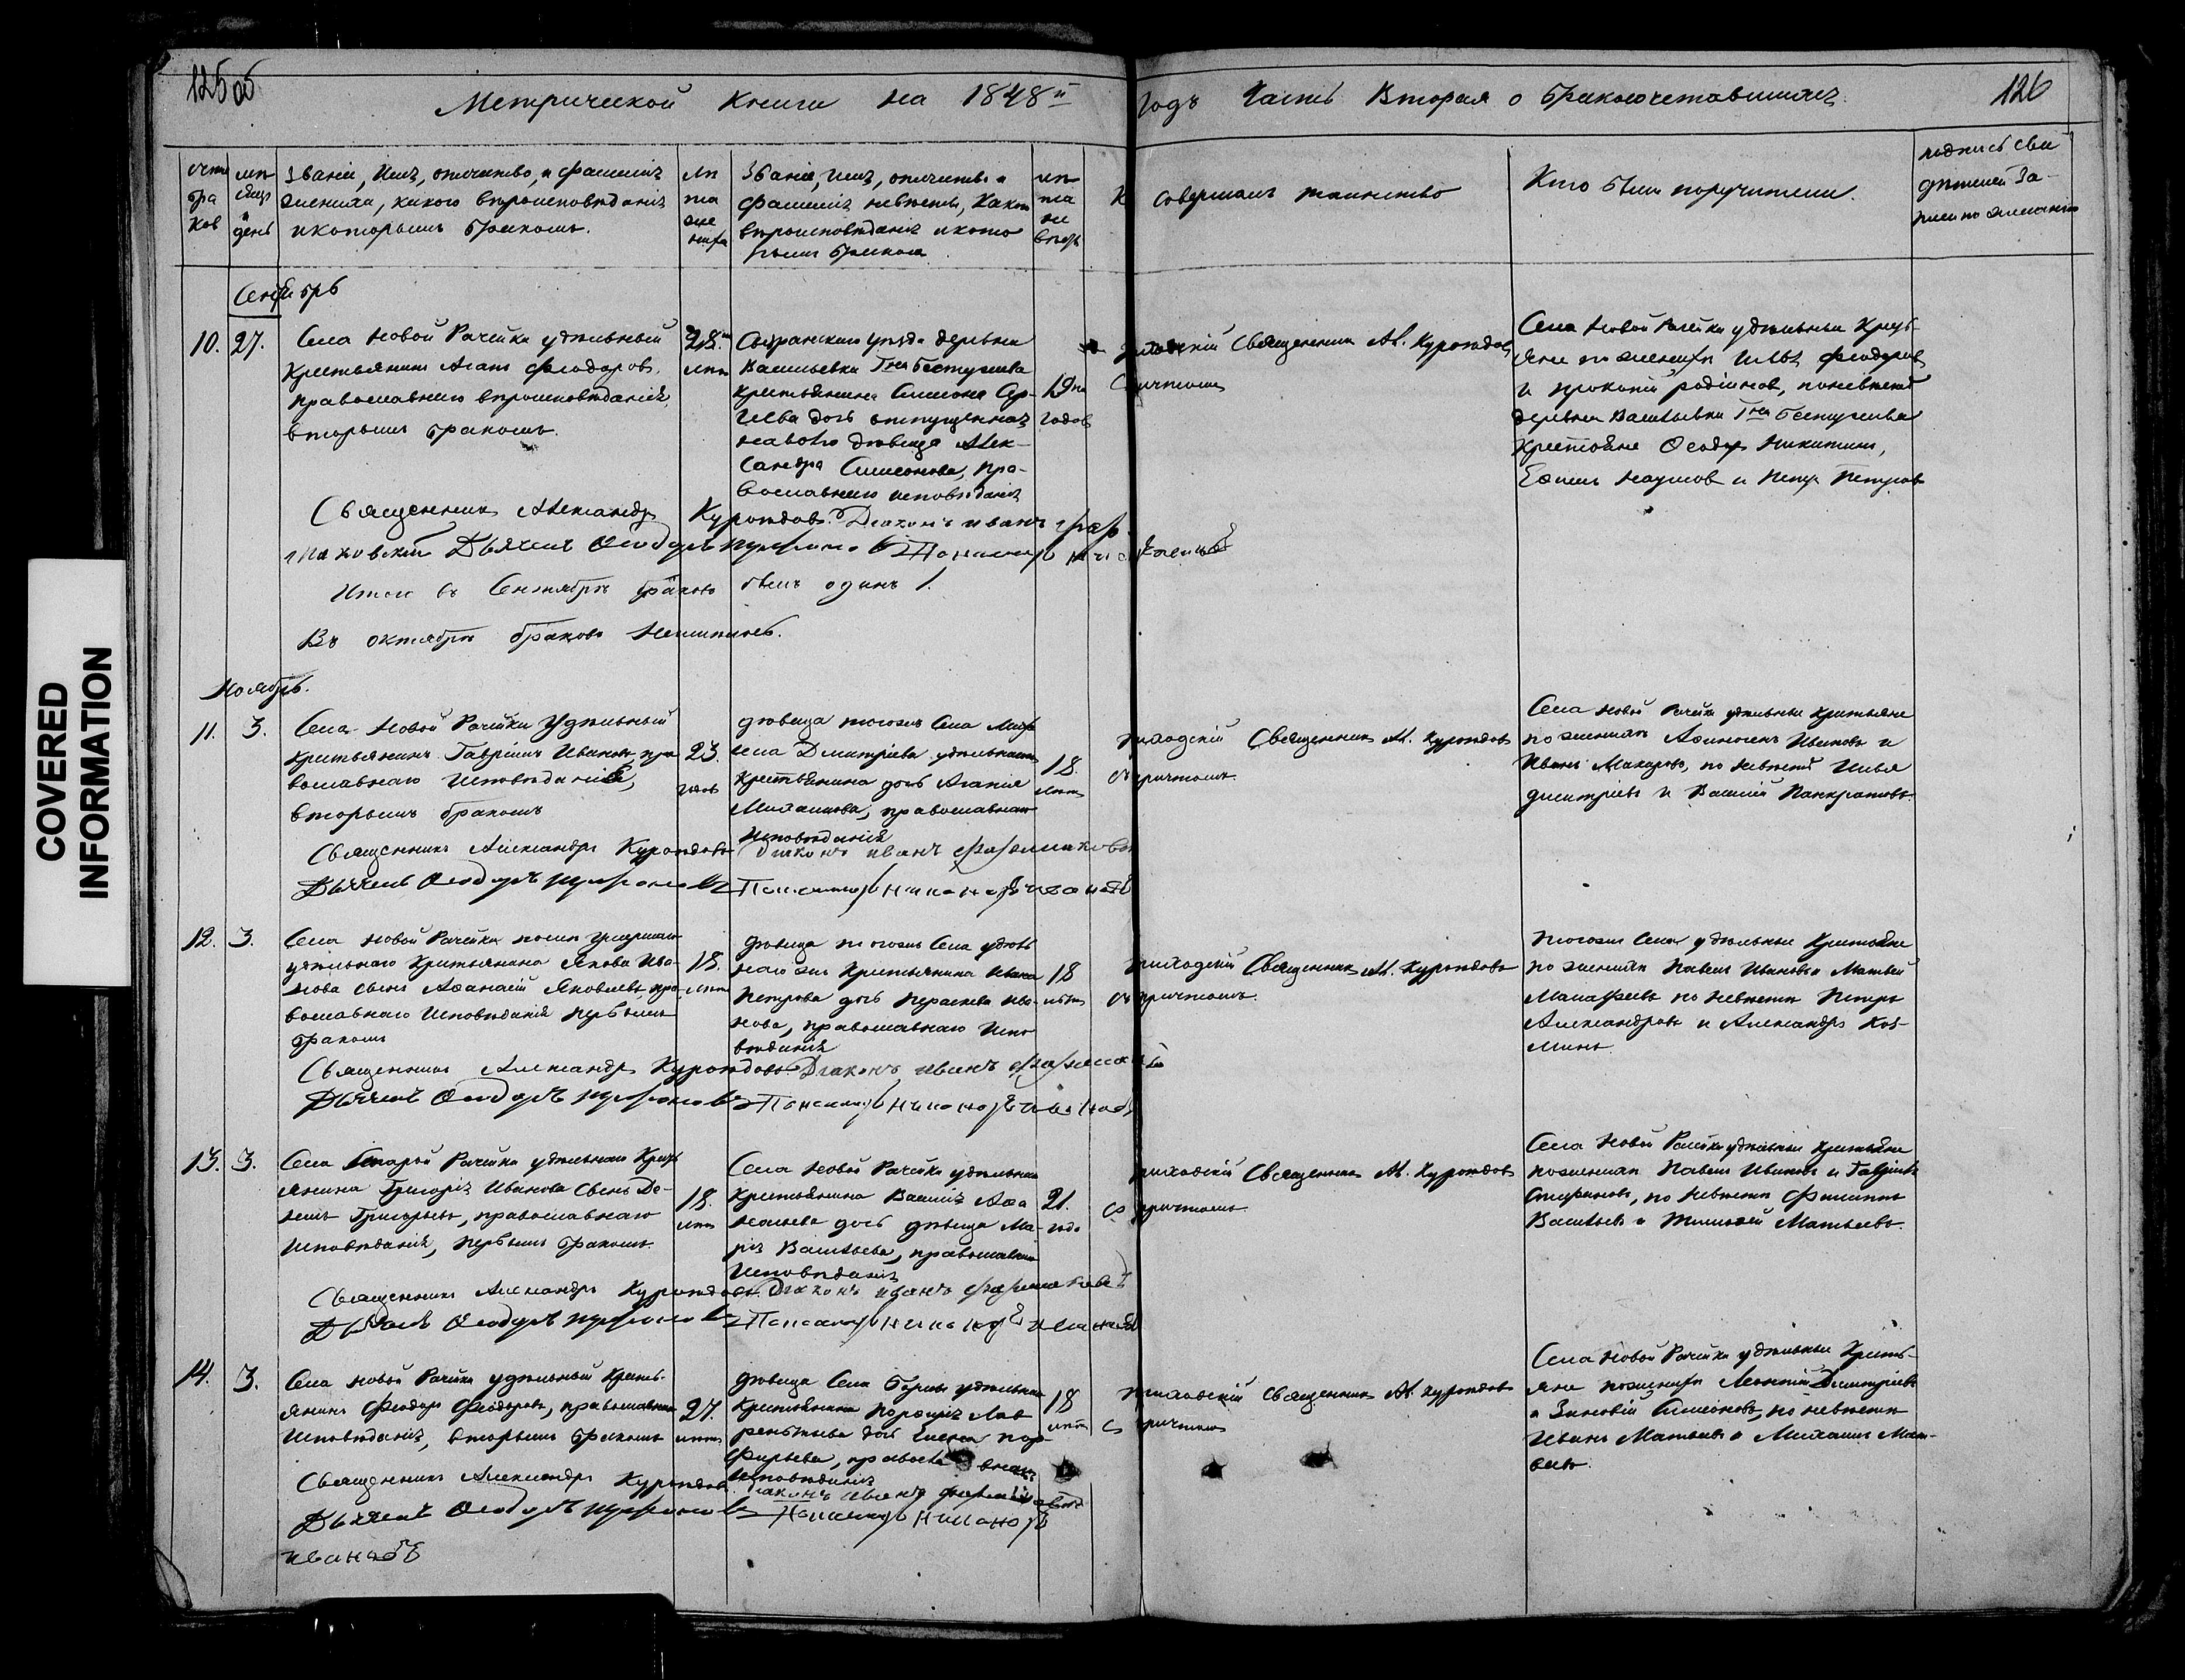 125 об
126
Метрической Книги на 1848й годъ Часть Вторая о бракосочетавшихся
счетъ браковъ
мѣсяцъ и день
Званіе, Имя, отчество, и фамилія
жениха, какого вѣроисповѣданія
и которымъ бракомъ.
лѣта жениха
Званіе, имя, отчество и
фамилія невѣсты, какого
вѣроисповѣданія и кото
рымъ бракомъ
лѣта невѣсты
совершалъ таинство
Кто были поручители.
подпись сви
дѣтелей За-
писи по желанію
Сентябрь
10. 27.
Села Новой Рачейки удѣльный
Крестьянинъ Агапъ Феодоровъ,
православнаго вѣроисповѣданія,
вторымъ бракомъ.
28.
лѣтъ
Сызранскаго уѣзда деревни
Васильевки Гна Бестужева
крестьянина Симеона Сер-
гѣева дочь отпущенная
на волю дѣвица Алек-
сандра Симеонова, пра-
вославнаго исповѣданія
19ти
годовъ
приходскій Священникъ Ал. Куроѣдовъ
Съ причтомъ
Села Новой Рачейки удѣльные Кресть-
яне по женихѣ Илья Феодоровъ
и Прокопій Родіоновъ, по невѣстѣ
деревни Васильевки Гна Бестужева
Крестьяне Ѳеодоръ Никитинъ,
Ефимъ Наумовъ и Петръ Петровъ
Священникъ Александръ Куроѣдовъ. Діаконъ Иванъ Фар-
маковскій Дьячекъ Ѳеодоръ Пономарь
Итого въ Сентябрѣ браковъ былъ одинъ 1.
Въ октябрѣ браковъ неимѣлось.
Ноябрь.
11. 3.
Села Новой Рачейки Удѣльный
крестьянинъ Гавріилъ Ивановъ, пра
вославнаго Исповѣданія,
вторымъ бракомъ
23.
года
дѣвица тогожъ Села Миха
ила Дмитріева удѣльнаго
крестьянина дочь Агапія
Михаилова, православнаго
Исповѣданія
18.
лѣтъ
приходскій Священникъ Ал. Куроѣдовъ
съ причтомъ.
Села Новой Рачейки удѣльные крестьяне
по женихѣ Афиногенъ Ивановъ и
Иванъ Макаровъ, по невѣстѣ Илья
Дмитріевъ и Василій Панкратовъ.
Священникъ Александръ Куроѣдовъ Діаконъ Иванъ Фармаковскій
Дьячекъ Ѳеодоръ Пономарь Никаноръ Ивановъ
12. 3.
Села Новой Рачейки послѣ умершаго
удѣльнаго Крестьянина Якова Ива-
нова сынъ Афанасій Яковлевъ, пра
вославнаго Исповѣданія первымъ
бракомъ
18.
лѣтъ
дѣвица тогожъ Села удѣль
наго же Крестьянина Ивана
Петрова дочь Параскева Ива
нова, православнаго Испо
вѣданія
18
лѣтъ
приходскій Священникъ Ал. Куроѣдовъ
съ причтомъ.
Тогожъ Села удѣльные Крестьяне
по женихѣ Павелъ Ивановъ и Матвей
Малафеевъ по невѣстѣ Петръ
Александровъ и Александръ Коз-
минъ
Священникъ Александръ Куроѣдовъ. Діаконъ Иванъ Фармаковскій
Дьячекъ Ѳеодоръ Пономарь Никаноръ Ивановъ
13. 3.
Села Старой Рачейки удѣльнаго Крест
янина Григорія Иванова Сынъ Де-
нисъ Григорьевъ, православнаго
Исповѣданія, первымъ бракомъ.
18.
лѣтъ
Села Новой Рачейки удѣльнаго
Крестьянина Василія Афа
насьева дочь дѣвица Ма-
рія Васильева, православнаго
Исповѣданія
21.
года
приходскій Священникъ Ал. Куроѣдовъ
Съ причтомъ
Села Новой Рачейки удѣльные крестьяне
по женихѣ Павелъ Ивановъ и Гавріилъ
Стефановъ, по невѣстѣ Филиппъ
Васильевъ и Тимофей Матвеевъ.
Священникъ Александръ Куроѣдовъ. Діаконъ Иванъ Фармаковскій
Дьячекъ Ѳеодоръ Пономарь Никаноръ Ивановъ
14. 3.
Села Новой Рачейки удѣльный Кресть-
янинъ Феодоръ Феодоровъ, православнаго
Исповѣданія, вторымъ бракомъ
27.
лѣтъ
дѣвица Села удѣльнаго
Крестьянина Порфирія Лав
рентьева дочь Елена Пор-
фирьева, православнаго
Исповѣданія
18
лѣтъ
приходскій Священникъ Ал. Куроѣдовъ
Съ причтомъ
Села Новой Рачейки удѣльные Кресть-
яне по женихѣ Леонтій Дмитріевъ
и Зиновій Симеоновъ, по невѣстѣ
Иванъ Матвеевъ и Михаилъ Мат-
веевъ.
Священникъ Александръ Куроѣдовъ. Діаконъ Иванъ Фармаковскій
Дьячекъ Ѳеодоръ Пономарь Никаноръ
Ивановъ
COVERED
INFORMATION